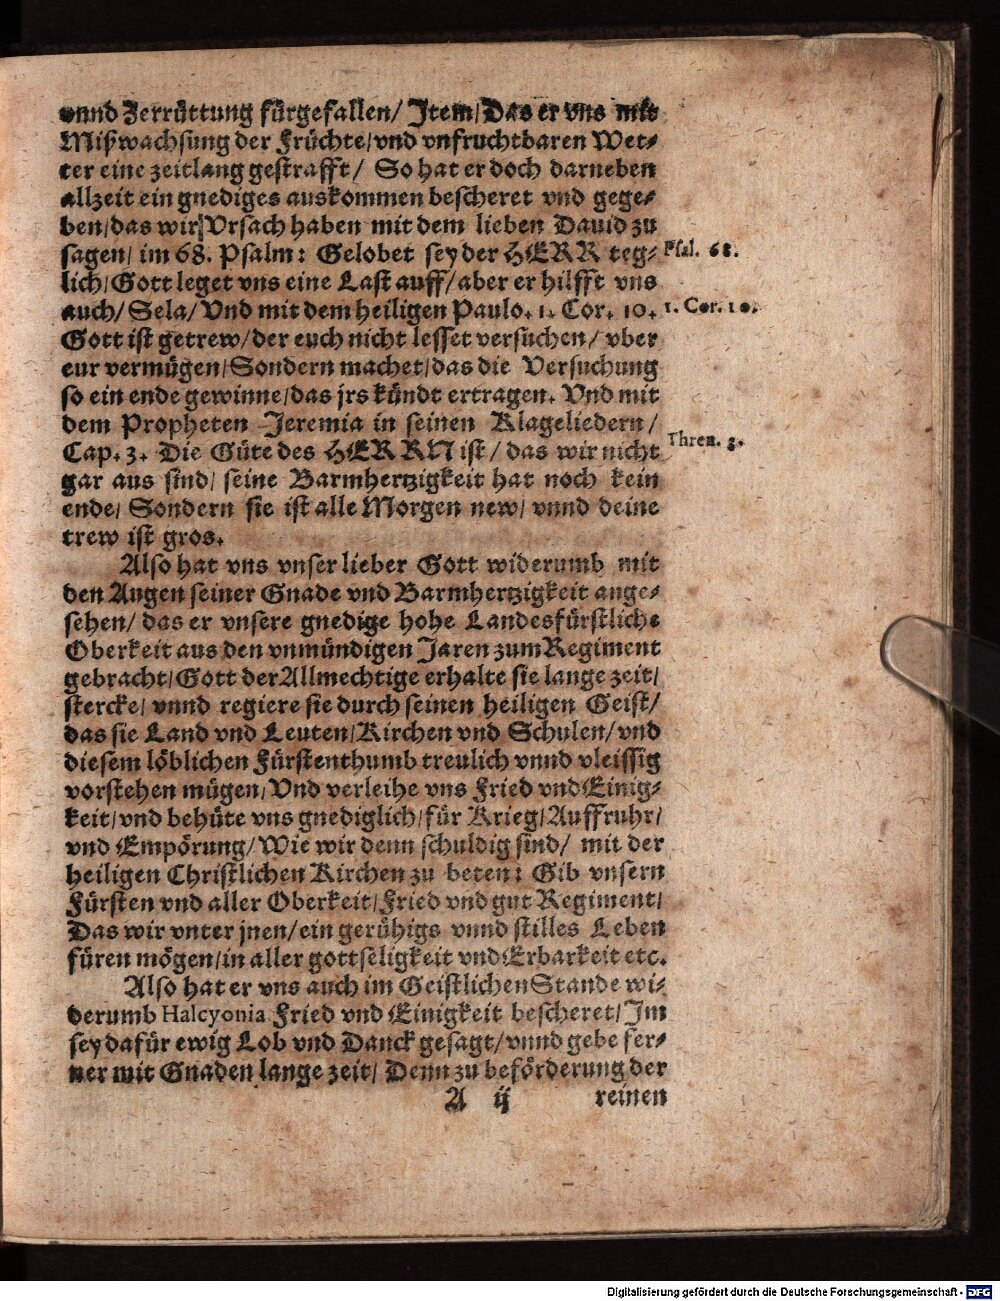 vnnd Zerrüttung fürgefallen/ Jtem/ Das er vns mit
Mißwachsung der Früchte/ vnd vnfruchtbaren Wet-
ter eine zeitlang gestrafft/ So hat er doch darneben
allzeit ein gnediges auskommen bescheret vnd gege-
ben/ das wir Vrsach haben mit dem lieben Dauid zu
sagen/ im 68. Psalm: Gelobet sey der HERR teg-
Psal. 68.
lich/ Gott leget vns eine Last auff/ aber er hilfft vns
auch/ Sela/ Vnd mit dem heiligen Paulo. 1. Cor. 10.
1. Cor. 10.
Gott ist getrew/ der euch nicht lesset versuchen/ vber
eur vermügen/ Sondern machet/ das die Versuchung
so ein ende gewinne/ das jrs kündt ertragen. Vnd mit
dem Propheten Jeremia in seinen Klageliedern/
Cap. 3. Die Güte des HERRN ist/ das wir nicht
Thren. 3.
gar aus sind/ seine Barmhertzigkeit hat noch kein
ende/ Sondern sie ist alle Morgen new/ vnnd deine
trew ist gros.
Also hat vns vnser lieber Gott widerumb mit
den Augen seiner Gnade vnd Barmhertzigkeit ange-
sehen/ das er vnsere gnedige hohe Landesfürstliche
Oberkeit aus den vnmündigen Jaren zum Regiment
gebracht/ Gott der Allmechtige erhalte sie lange zeit/
stercke/ vnnd regiere sie durch seinen heiligen Geist/
das sie Land vnd Leuten/ Kirchen vnd Schulen/ vnd
diesem löblichen Fürstenthumb treulich vnnd vleissig
vorstehen mügen/ Vnd verleihe vns Fried vnd Einig-
keit/ vnd behüte vns gnediglich/ für Krieg/ Auffruhr/
vnd Empörung/ Wie wir denn schuldig sind/ mit der
heiligen Christlichen Kirchen zu beten: Gib vnsern
Fürsten vnd aller Oberkeit/ Fried vnd gut Regiment/
Das wir vnter jnen/ ein gerühigs vnnd stilles Leben
füren mögen/ in aller gottseligkeit vnd Erbarkeit etc.
Also hat er vns auch im Geistlichen Stande wi-
derumb Halcyonia Fried vnd Einigkeit bescheret/ Jm
sey dafür ewig Lob vnd Danck gesagt/ vnnd gebe fer-
ner mit Gnaden lange zeit/ Denn zu beförderung der
A ij reinen
Digitalisierung gefördert durch die Deutsche Forschungsgemeinschaft - DFG